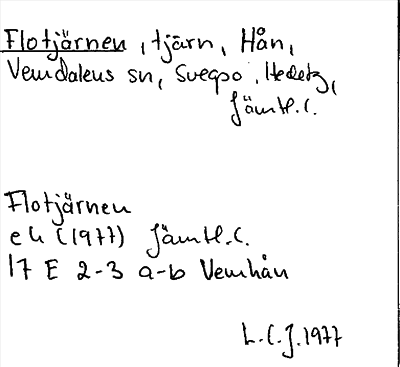 Flotjärnen, tjärn, Hån,
Vemdalens sn, Svegso, Hedetg,
Jämtl.l.
Flotjärnen
ek (1977) Jämtl.l.
17 E 2-3 a-b Vemhån
L.C.J. 1977